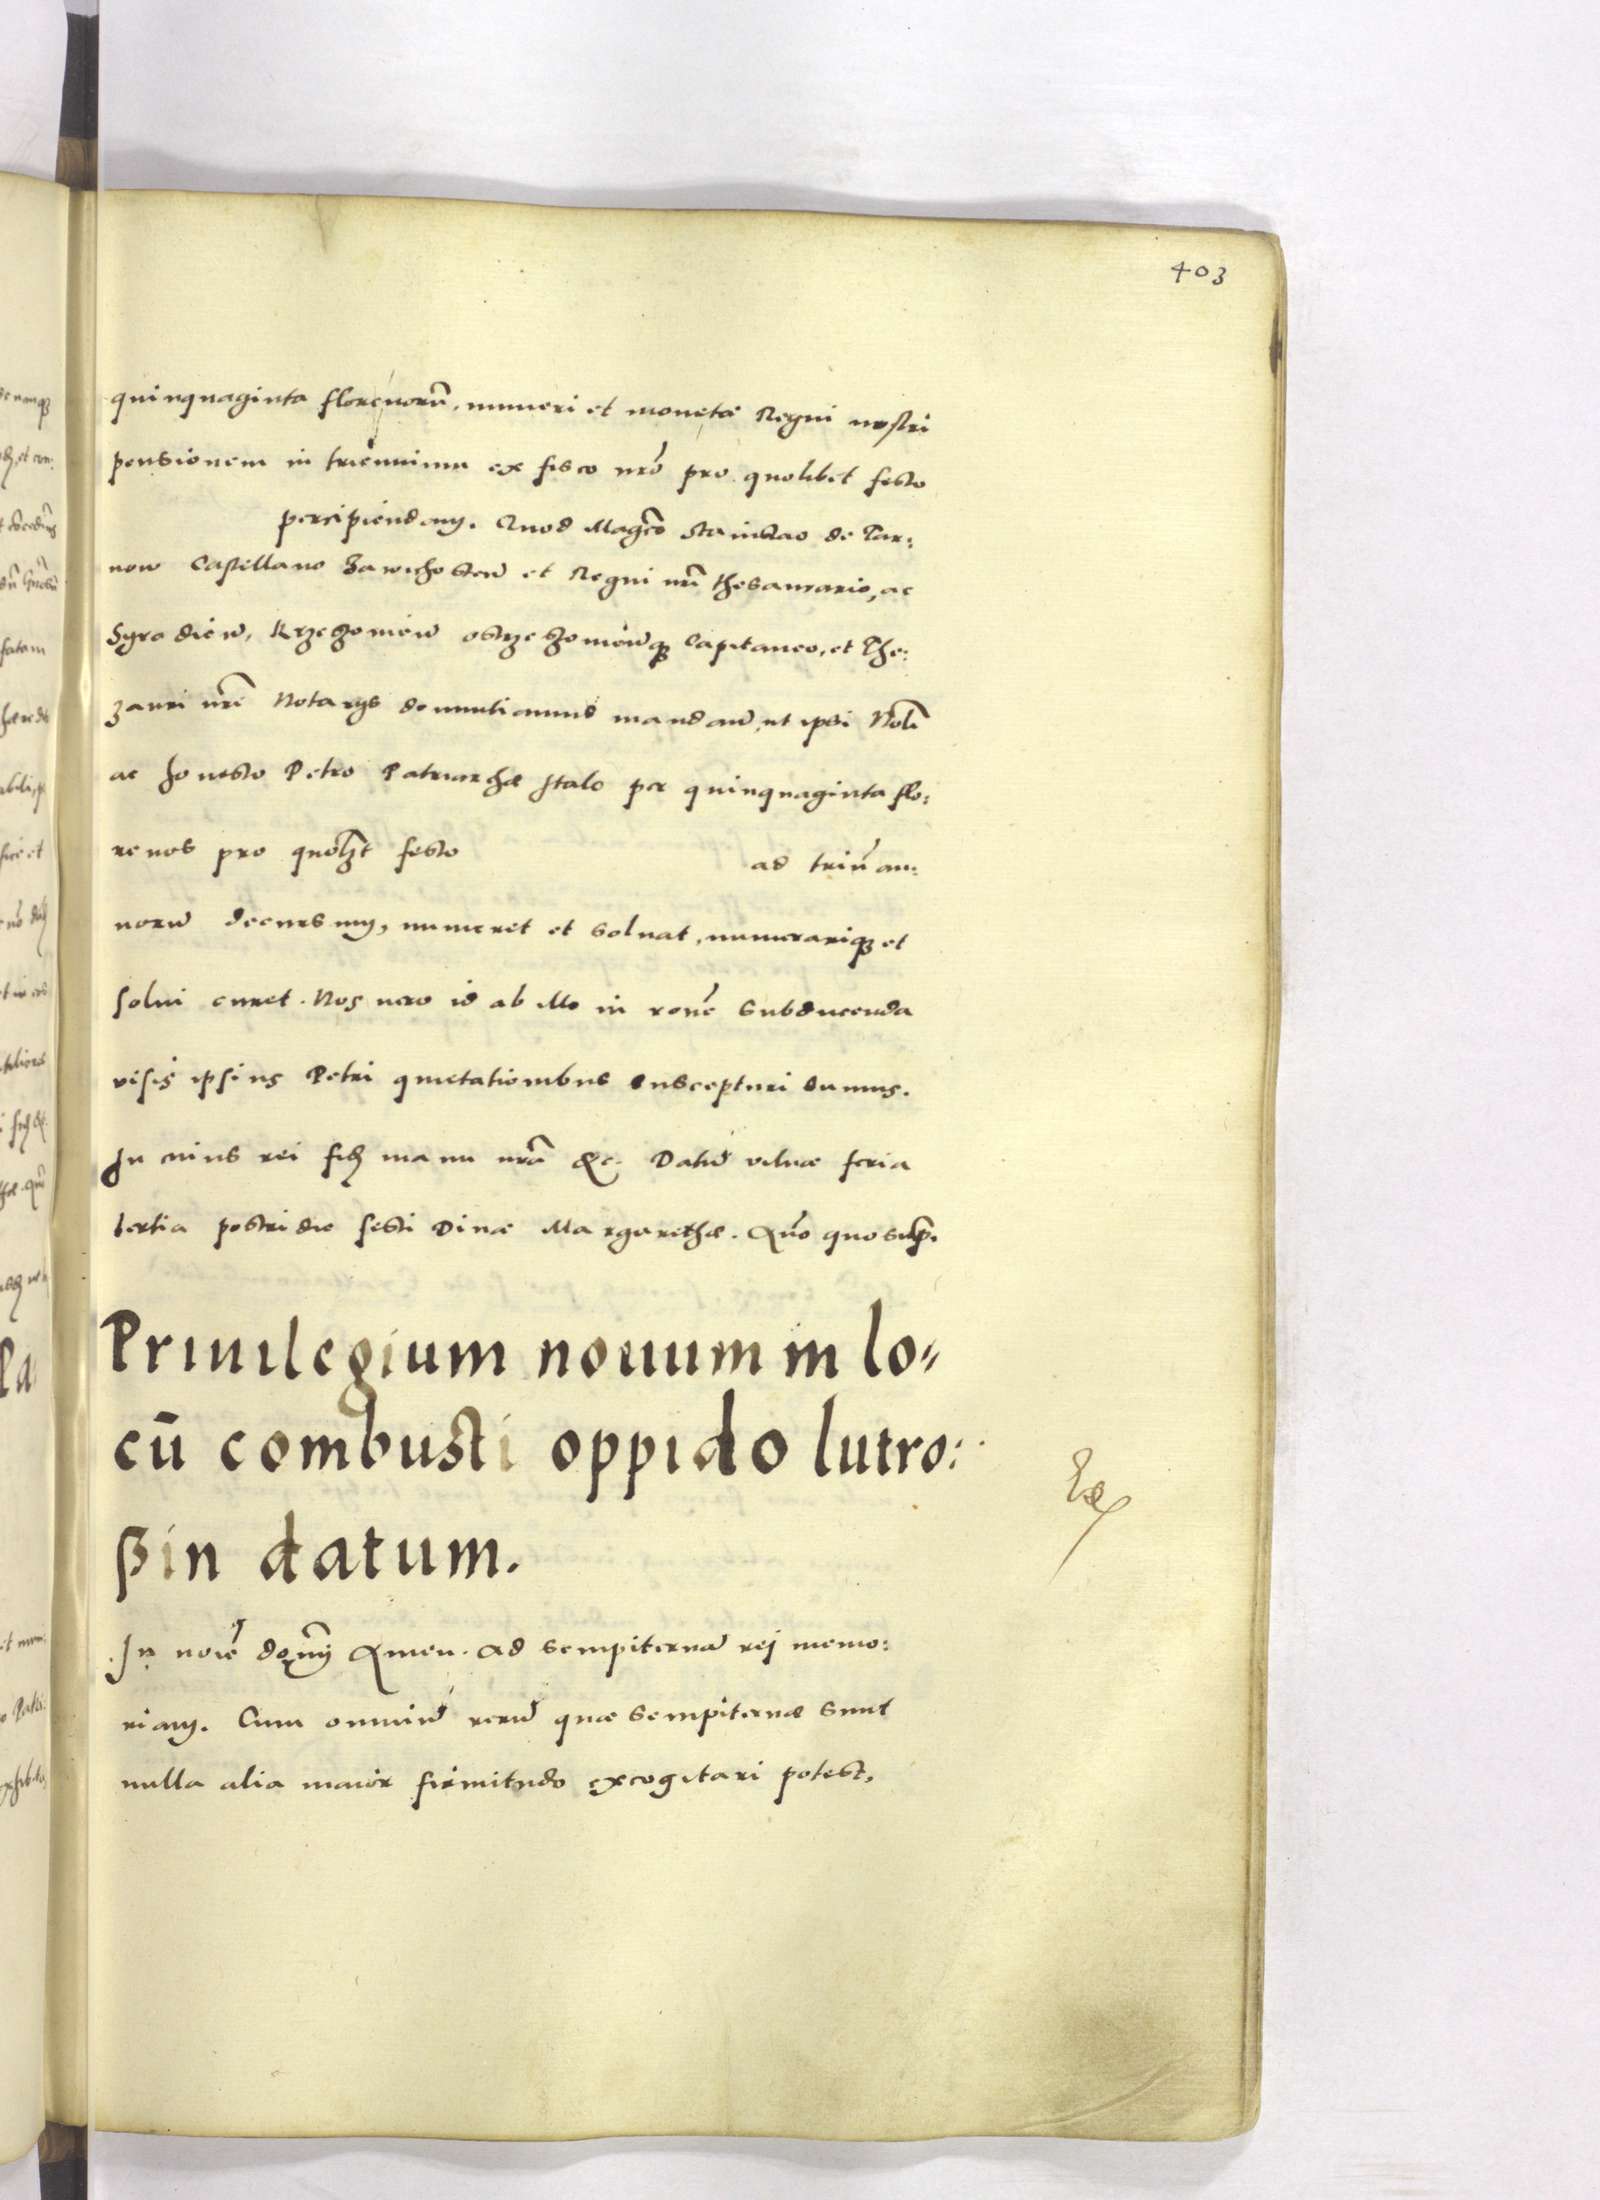 403
quinquaginta florenorū, numeri et monetæ Regni nostri
pensionem in triennium ex fisco nrō pro quolibet festo
percipiendam. Quod Magco Stanislao de Tar:
now Castellano Zawichosteñ et Regni nri thesaurario, ac
Syradieñ, Krzeszowieñ ostrzeszowieñq; Capitaneo, et The:
zauri nri Notarys denuntiamus mandañ, ut ipsi Nobli
ac honesto Petro Patriarchæ Italo per quinquaginta flo:
renos pro quolzt festo ad triū an:
norū decursum, numeret et soluat, numerariq; et
solui curet. Nos uero id ab illo in ronē subducenda
visis ipsius Petri quietationibus suscepturi sumus.
In cuius rei fidē manu nrā &c. Datū vilnæ feria
tertia postridie festi Diuæ Margarethæ. Añō quo supr.
Priuilegium nouum in lo=
cū combusti oppido lutro:
ßin datum.
In noīe dom̄y Amen. Ad sempiternā rei memo:
riam. Cum omniū rerū quæ sempiternæ sunt
nulla alia maior firmitudo excogitari potest,